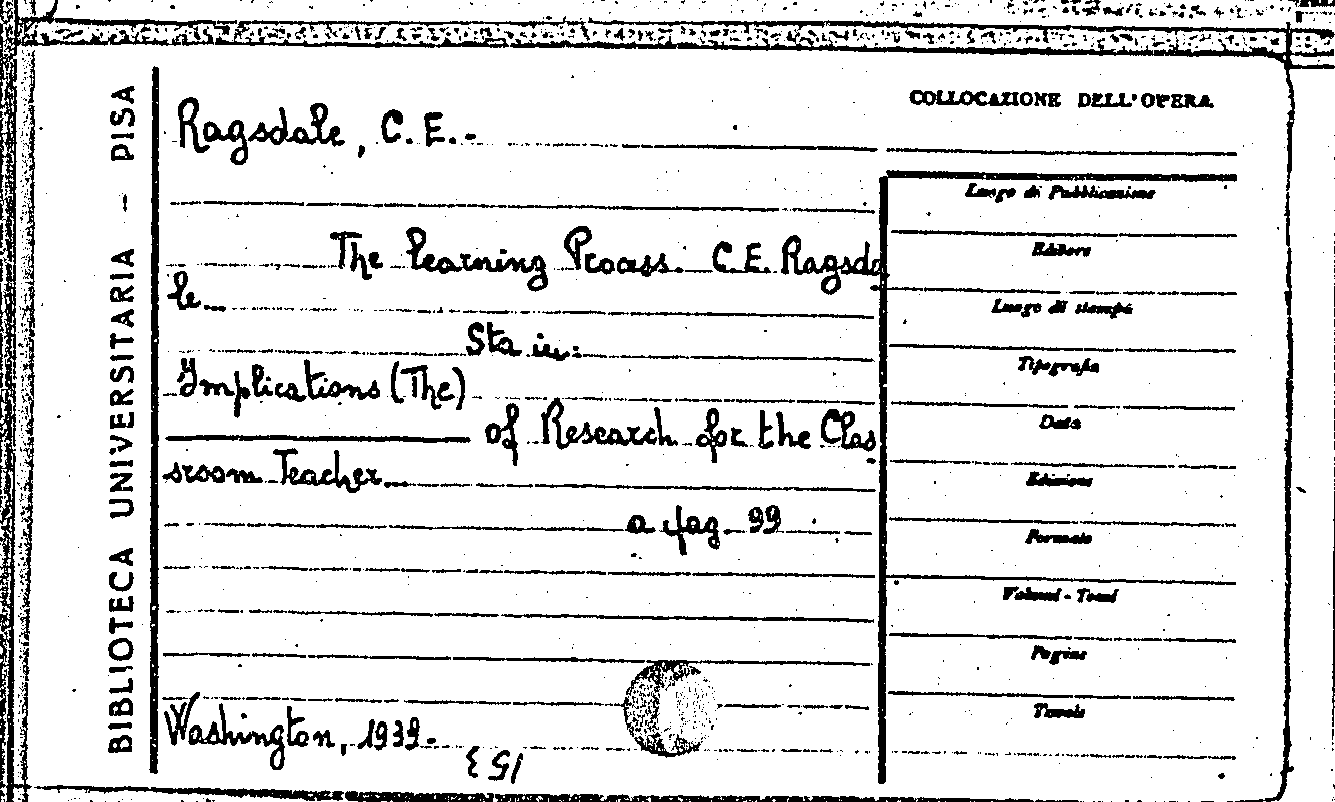 BIBLIOTECA UNIVERSITARIA - PISA
COLLOCAZIONE DELL'OPERA
Ragsdale, C. E.-
The learning Process. C.E. Ragsda
le...
Sta in:
Implications (The)
of Research for the Clas
sroom Teacher...
a pag. 99
Washington, 1939-
153
Luogo di Pubblicazione
Editore
Luogo di stampa
Tipografia
Data
Edizione
Formato
Volumi - Tomi
Pagine
Tavole